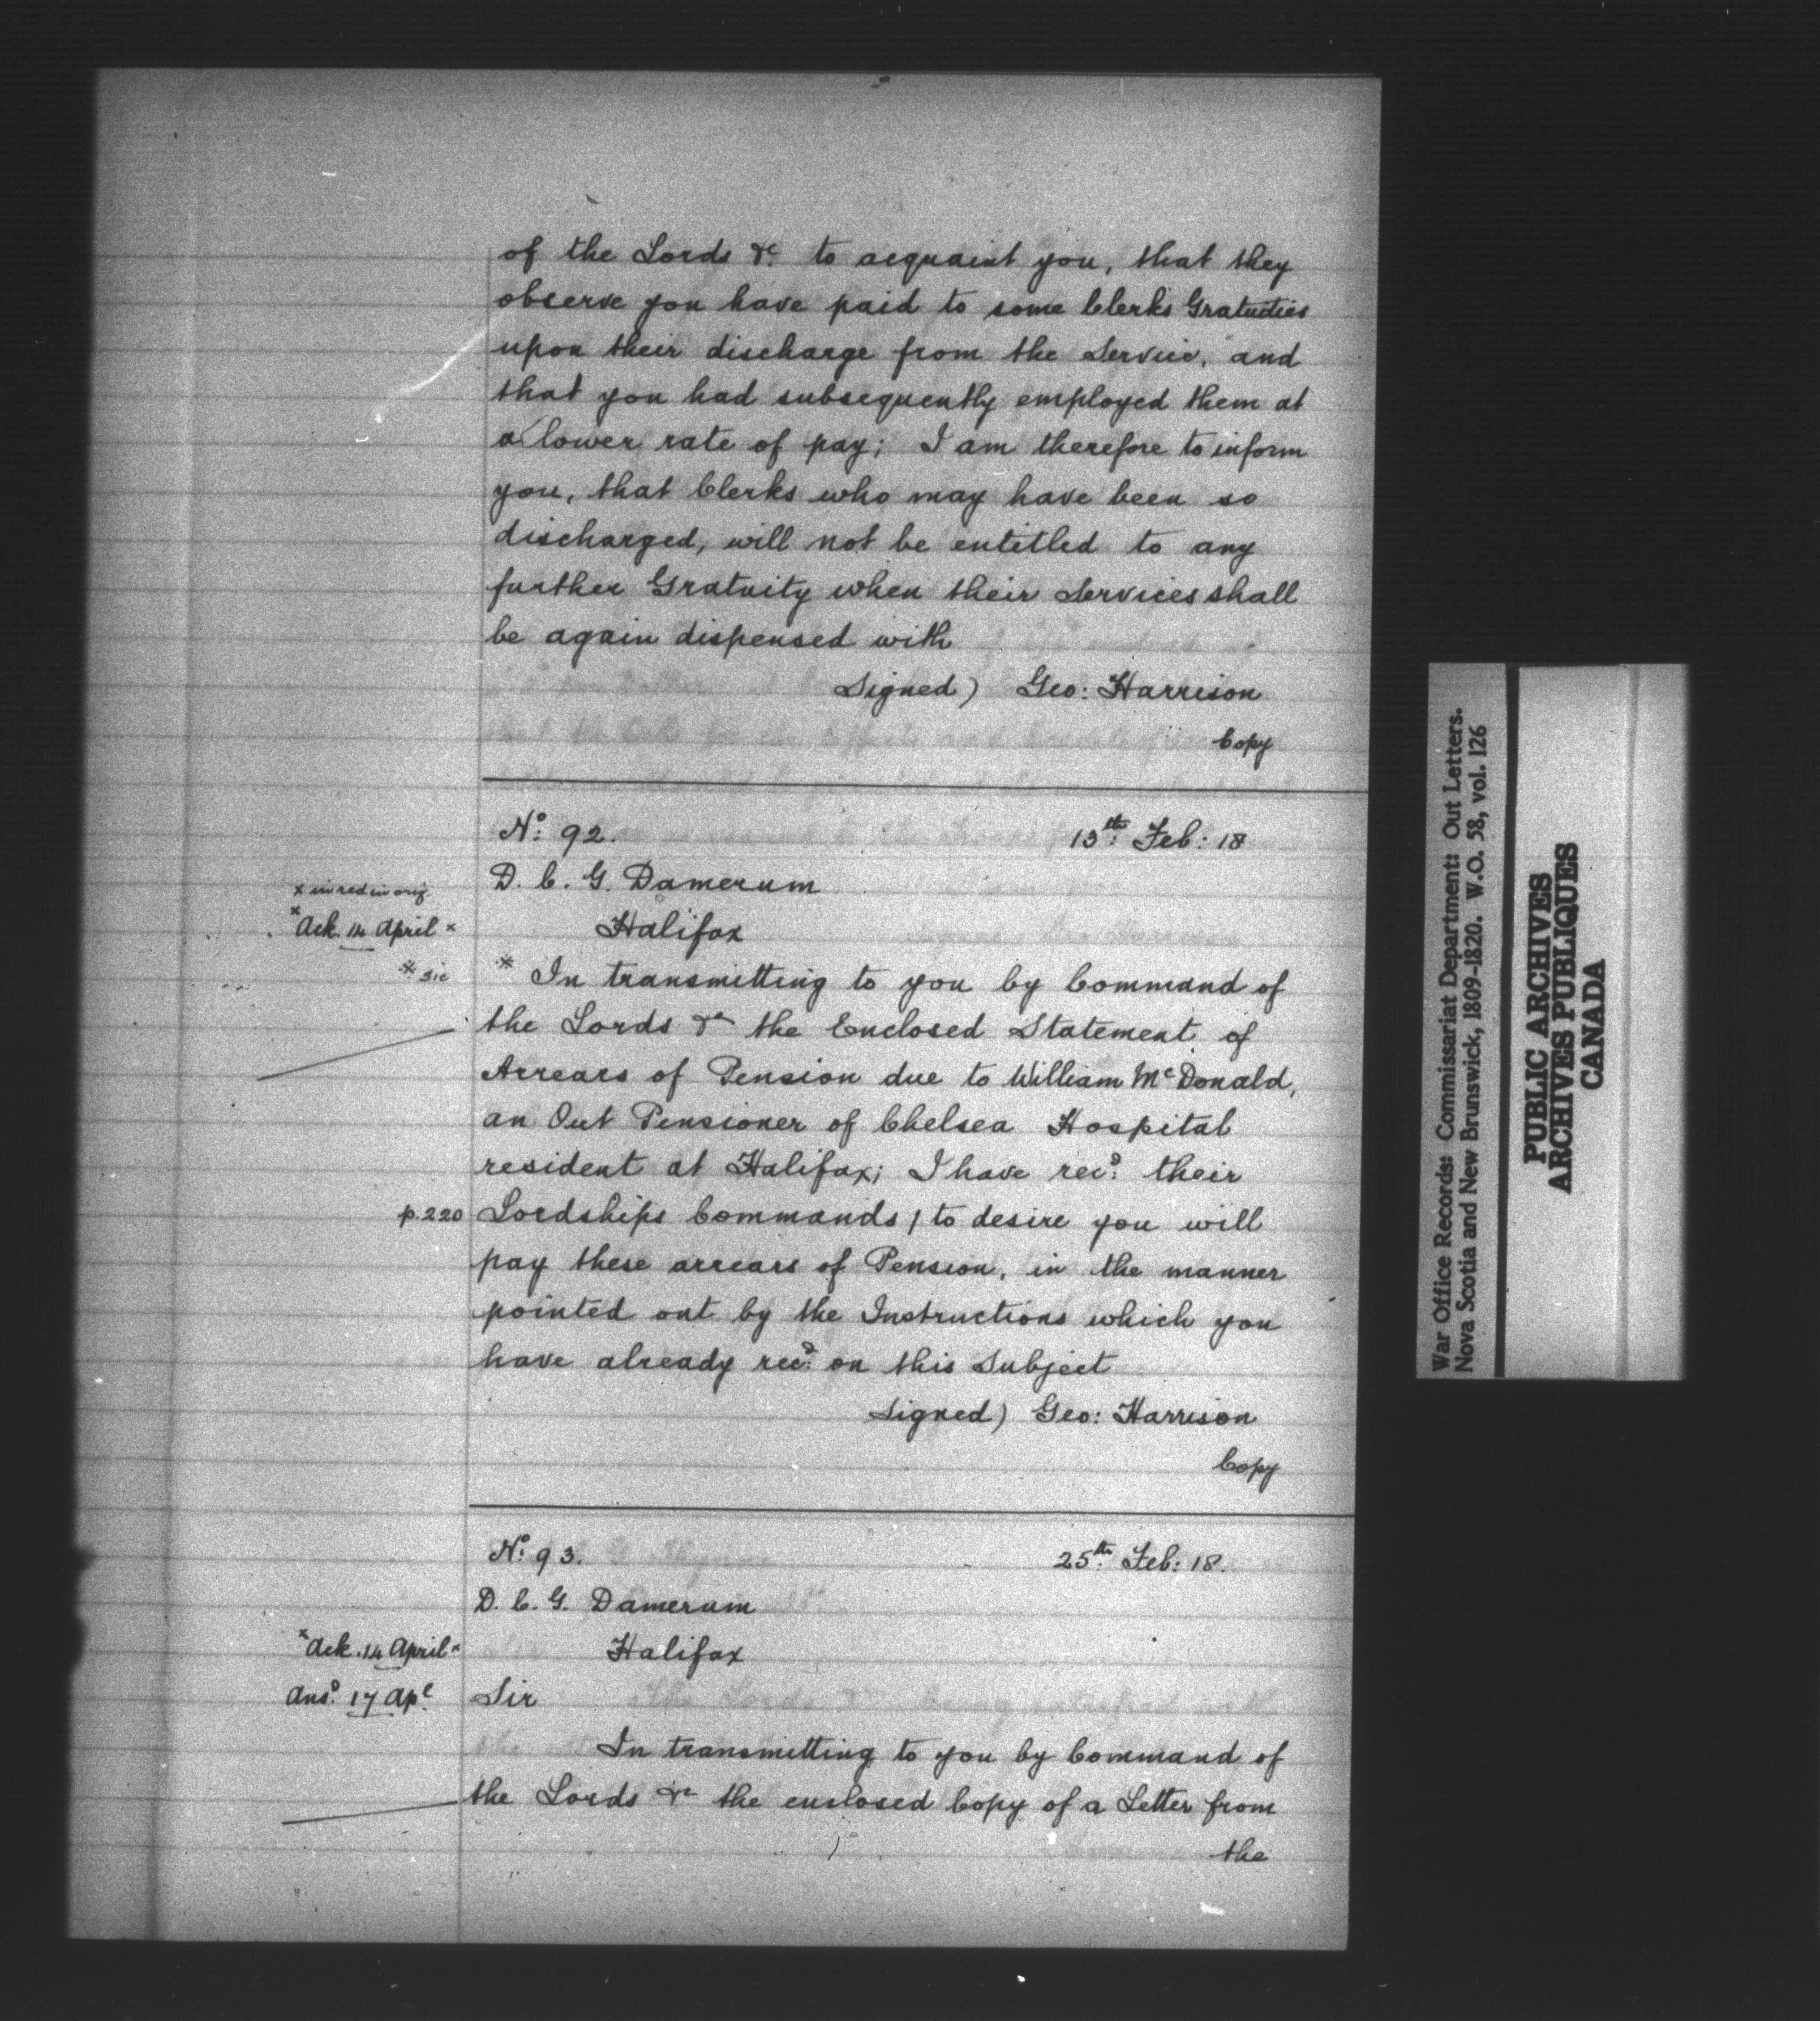 of the Lords &c. to acquaint you, that they
observe you have paid to some Clerks Gratuities
upon their discharge from the Service, and
that you had subsequently employed them at
a lower rate of pay; I am therefore to inform
you, that Clerks who may have been so
discharged, will not be entitled to any
further Gratuity when their Services shall
be again dispensed with
Signed) Geo: Harrison
Copy
No: 92. 13th: Feb: 18
D. C. G. Damerum
x in red in orig.
x Ack. 14 April x Halifax
* sic * In transmitting to you by Command of
the Lords &c the Enclosed Statement of
Arrears of Pension due to William McDonald,
an Out Pensioner of Chelsea Hospital
resident at Halifax; I have recd: their
p.220 Lordships Commands / to desire you will
pay these arrears of Pension, in the manner
pointed out by the Instructions which you
have already recd: on this Subject
Signed) Geo: Harrison
Copy
No: 93. 25th: Feb: 18.
D. C. G. Damerum
x Ack. 14 April x Halifax
Ansd: 17 Apl. Sir
In transmitting to you by Command of
the Lords &c the enclosed Copy of a Letter from
the
War Office Records: Commissariat Department: Out Letters.
Nova Scotia and New Brunswick, 1809-1820. W.O. 58, vol. 126
PUBLIC ARCHIVES
ARCHIVES PUBLIQUES
CANADA